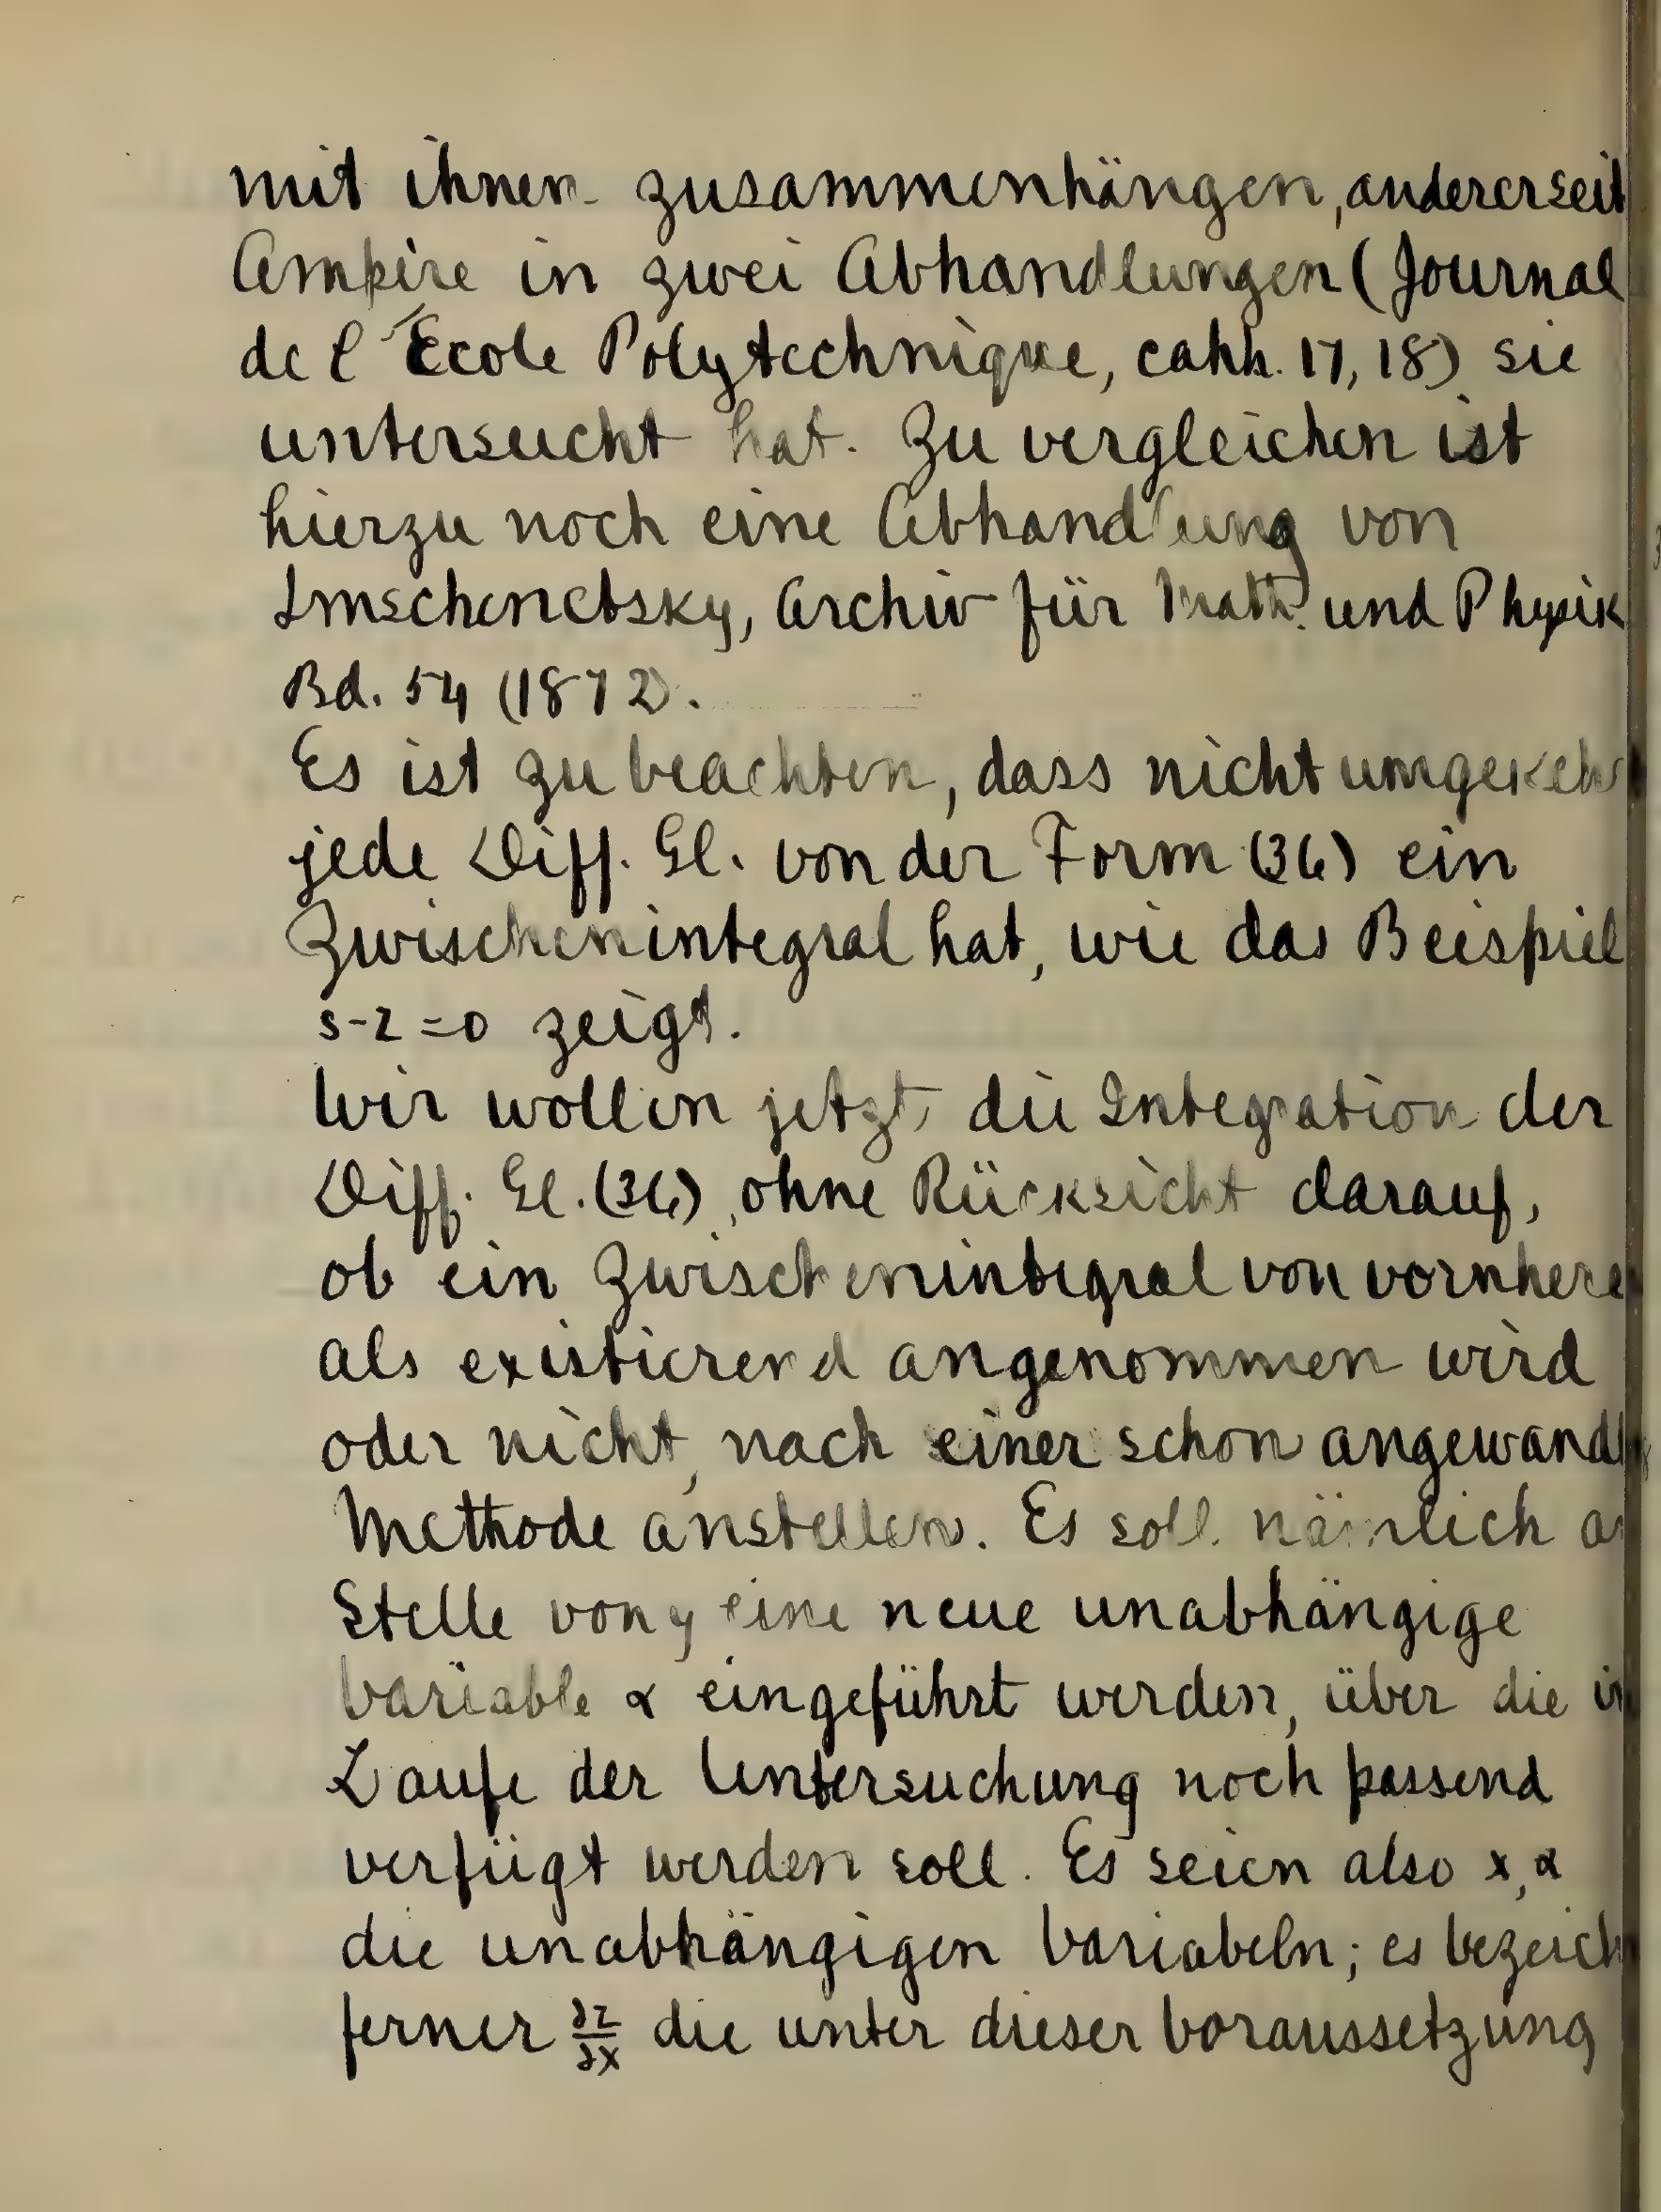 mit ihnen zusammenhängen, andererseit
Ampère in zwei Abhandlungen (Journal
de l'École Polytechnique, cahh. 17, 18) sie
untersucht hat. Zu vergleichen ist
hierzu noch eine Abhandlung von
Imschenetsky, Archiv für Math. und Physik
Bd. 54 (1872).
Es ist zu beachten, dass nicht umgekehr
jede Diff. Gl. von der Form (36) ein
Zwischenintegral hat, wie das Beispiel
s-z=0 zeigt.
Wir wollen jetzt die Integration der
Diff. Gl. (36), ohne Rücksicht darauf,
ob ein Zwischenintegral von vornhere
als existierend angenommen wird
oder nicht, nach einer schon angewandt
Methode anstellen. Es soll nämlich an
Stelle von y eine neue unabhängige
Variable α eingeführt werden, über die im
Laufe der Untersuchung noch passend
verfügt werden soll. Es seien also x, α
die unabhängigen Variabeln; es bezeich
ferner ∂z/∂x die unter dieser Voraussetzung